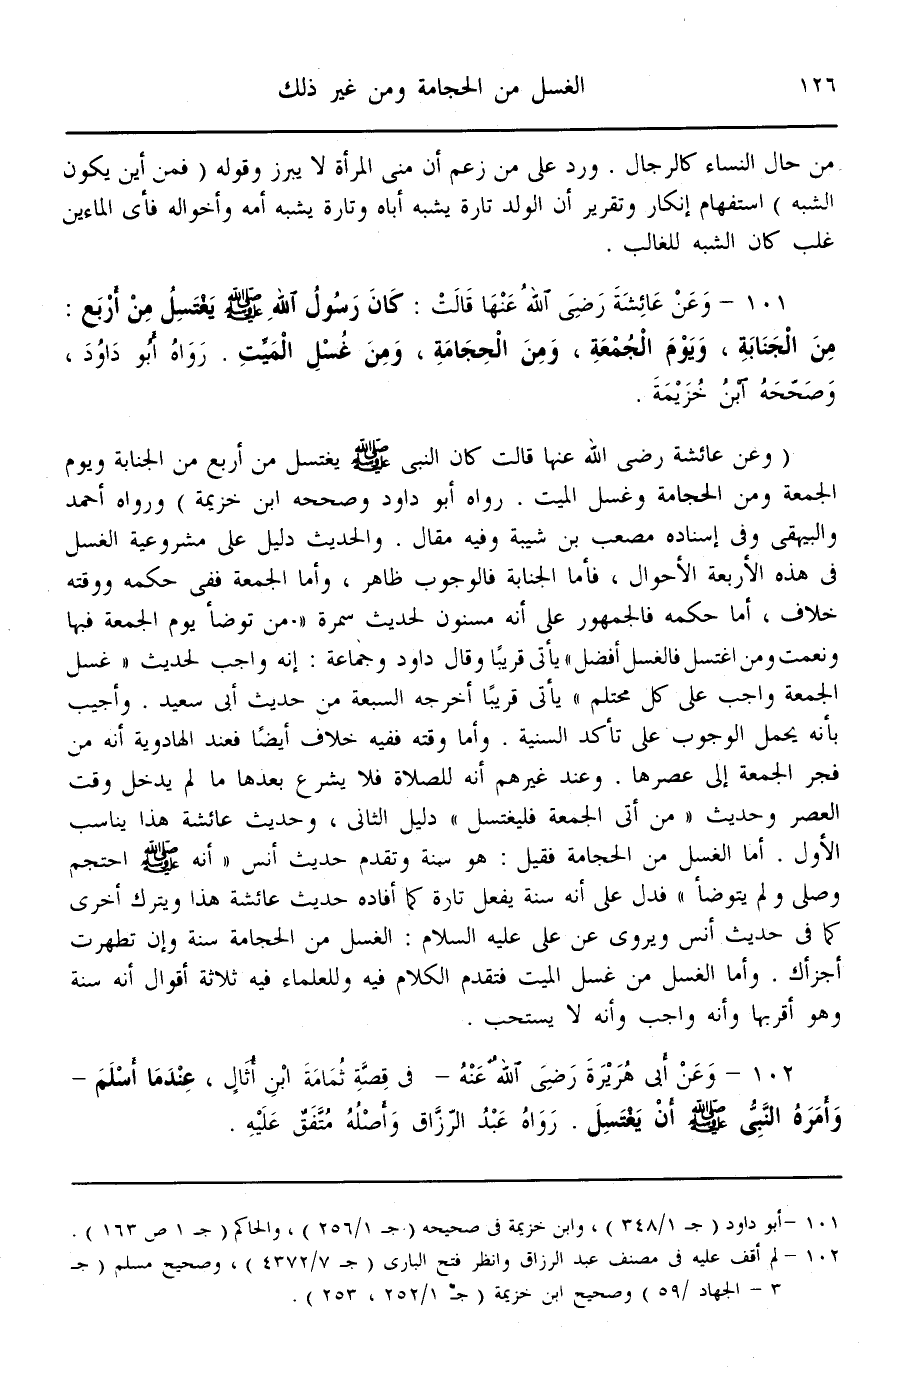 ١٢٦ الغسل من الحجامة ومن غير ذلك
من حال النساء كالرجال . ورد على من زعم أن منى المرأة لا يبرز وقوله ( فمن أين يكون
الشبه ) استفهام إنكار وتقرير أن الولد تارة يشبه أباه وتارة يشبه أمه وأخواله فأى الماءين
غلب كان الشبه للغالب .
١٠١ – وَعَنْ عَائِشَةَ رَضِىَ ٱللهُ عَنْهَا قَالَتْ : كَانَ رَسُولُ ٱللهِ ﷺ يَغْتَسِلُ مِنْ أَرْبَعٍ :
مِنَ الْجَنَابَةِ ، وَيَوْمَ الْجُمْعَةِ ، وَمِنَ الْحِجَامَةِ ، وَمِنَ غُسْلِ الْمَيِّتِ . رَوَاهُ أَبُو دَاوُدَ ،
وَصَحّحَهُ ٱبْنُ خُزَيْمَةَ .
( وعن عائشة رضى الله عنها قالت كان النبى ﷺ يغتسل من أربع من الجنابة ويوم
الجمعة ومن الحجامة وغسل الميت . رواه أبو داود وصححه ابن خزيمة ) ورواه أحمد
والبيهقى وفى إسناده مصعب بن شيبة وفيه مقال . والحديث دليل على مشروعية الغسل
فى هذه الأربعة الأحوال ، فأما الجنابة فالوجوب ظاهر ، وأما الجمعة ففى حكمه ووقته
خلاف ، أما حكمه فالجمهور على أنه مسنون لحديث سمرة «من توضأ يوم الجمعة فبها
ونعمت ومن اغتسل فالغسل أفضل» يأتى قريبًا وقال داود وجماعة : إنه واجب لحديث « غسل
الجمعة واجب على كل محتلم » يأتى قريبًا أخرجه السبعة من حديث أبى سعيد . وأجيب
بأنه يحمل الوجوب على تأكد السنية . وأما وقته ففيه خلاف أيضًا فعند الهادوية أنه من
فجر الجمعة إلى عصرها . وعند غيرهم أنه للصلاة فلا يشرع بعدها ما لم يدخل وقت
العصر وحديث « من أتى الجمعة فليغتسل » دليل الثانى ، وحديث عائشة هذا يناسب
الأول . أما الغسل من الحجامة فقيل : هو سنة وتقدم حديث أنس « أنه ﷺ احتجم
وصلى ولم يتوضأ » فدل على أنه سنة يفعل تارة كما أفاده حديث عائشة هذا ويترك أخرى
كما فى حديث أنس ويروى عن على عليه السلام : الغسل من الحجامة سنة وإن تطهرت
أجزأك . وأما الغسل من غسل الميت فتقدم الكلام فيه وللعلماء فيه ثلاثة أقوال أنه سنة
وهو أقربها وأنه واجب وأنه لا يستحب .
١٠٢ – وَعَنْ أَبى هُرَيْرَةَ رَضِىَ ٱللهُ عَنْهُ – فى قِصَّةِ ثُمَامَةَ ابْنِ أُثَالٍ ، عِنْدَمَا أَسْلَمَ –
وَأَمَرَهُ النَّبِىُّ ﷺ أَنْ يَغْتَسِلَ . رَوَاهُ عَبْدُ الرّزَّاق وَأَصْلُهُ مُتَّفَقٌ عَلَيْهِ .
١٠١ –أبو داود ( جـ ٣٤٨/١ ) ، وابن خزيمة فى صحيحه ( جـ ٢٥٦/١ ) ، والحاكم ( جـ ١ ص ١٦٣ ) .
١٠٢ – لم أقف عليه فى مصنف عبد الرزاق وانظر فتح البارى ( جـ ٤٣٧٢/٧ ) ، وصحيح مسلم ( جـ
٣ – الجهاد /٥٩ ) وصحيح ابن خزيمة ( جـ ٢٥٢/١ ، ٢٥٣ ) .